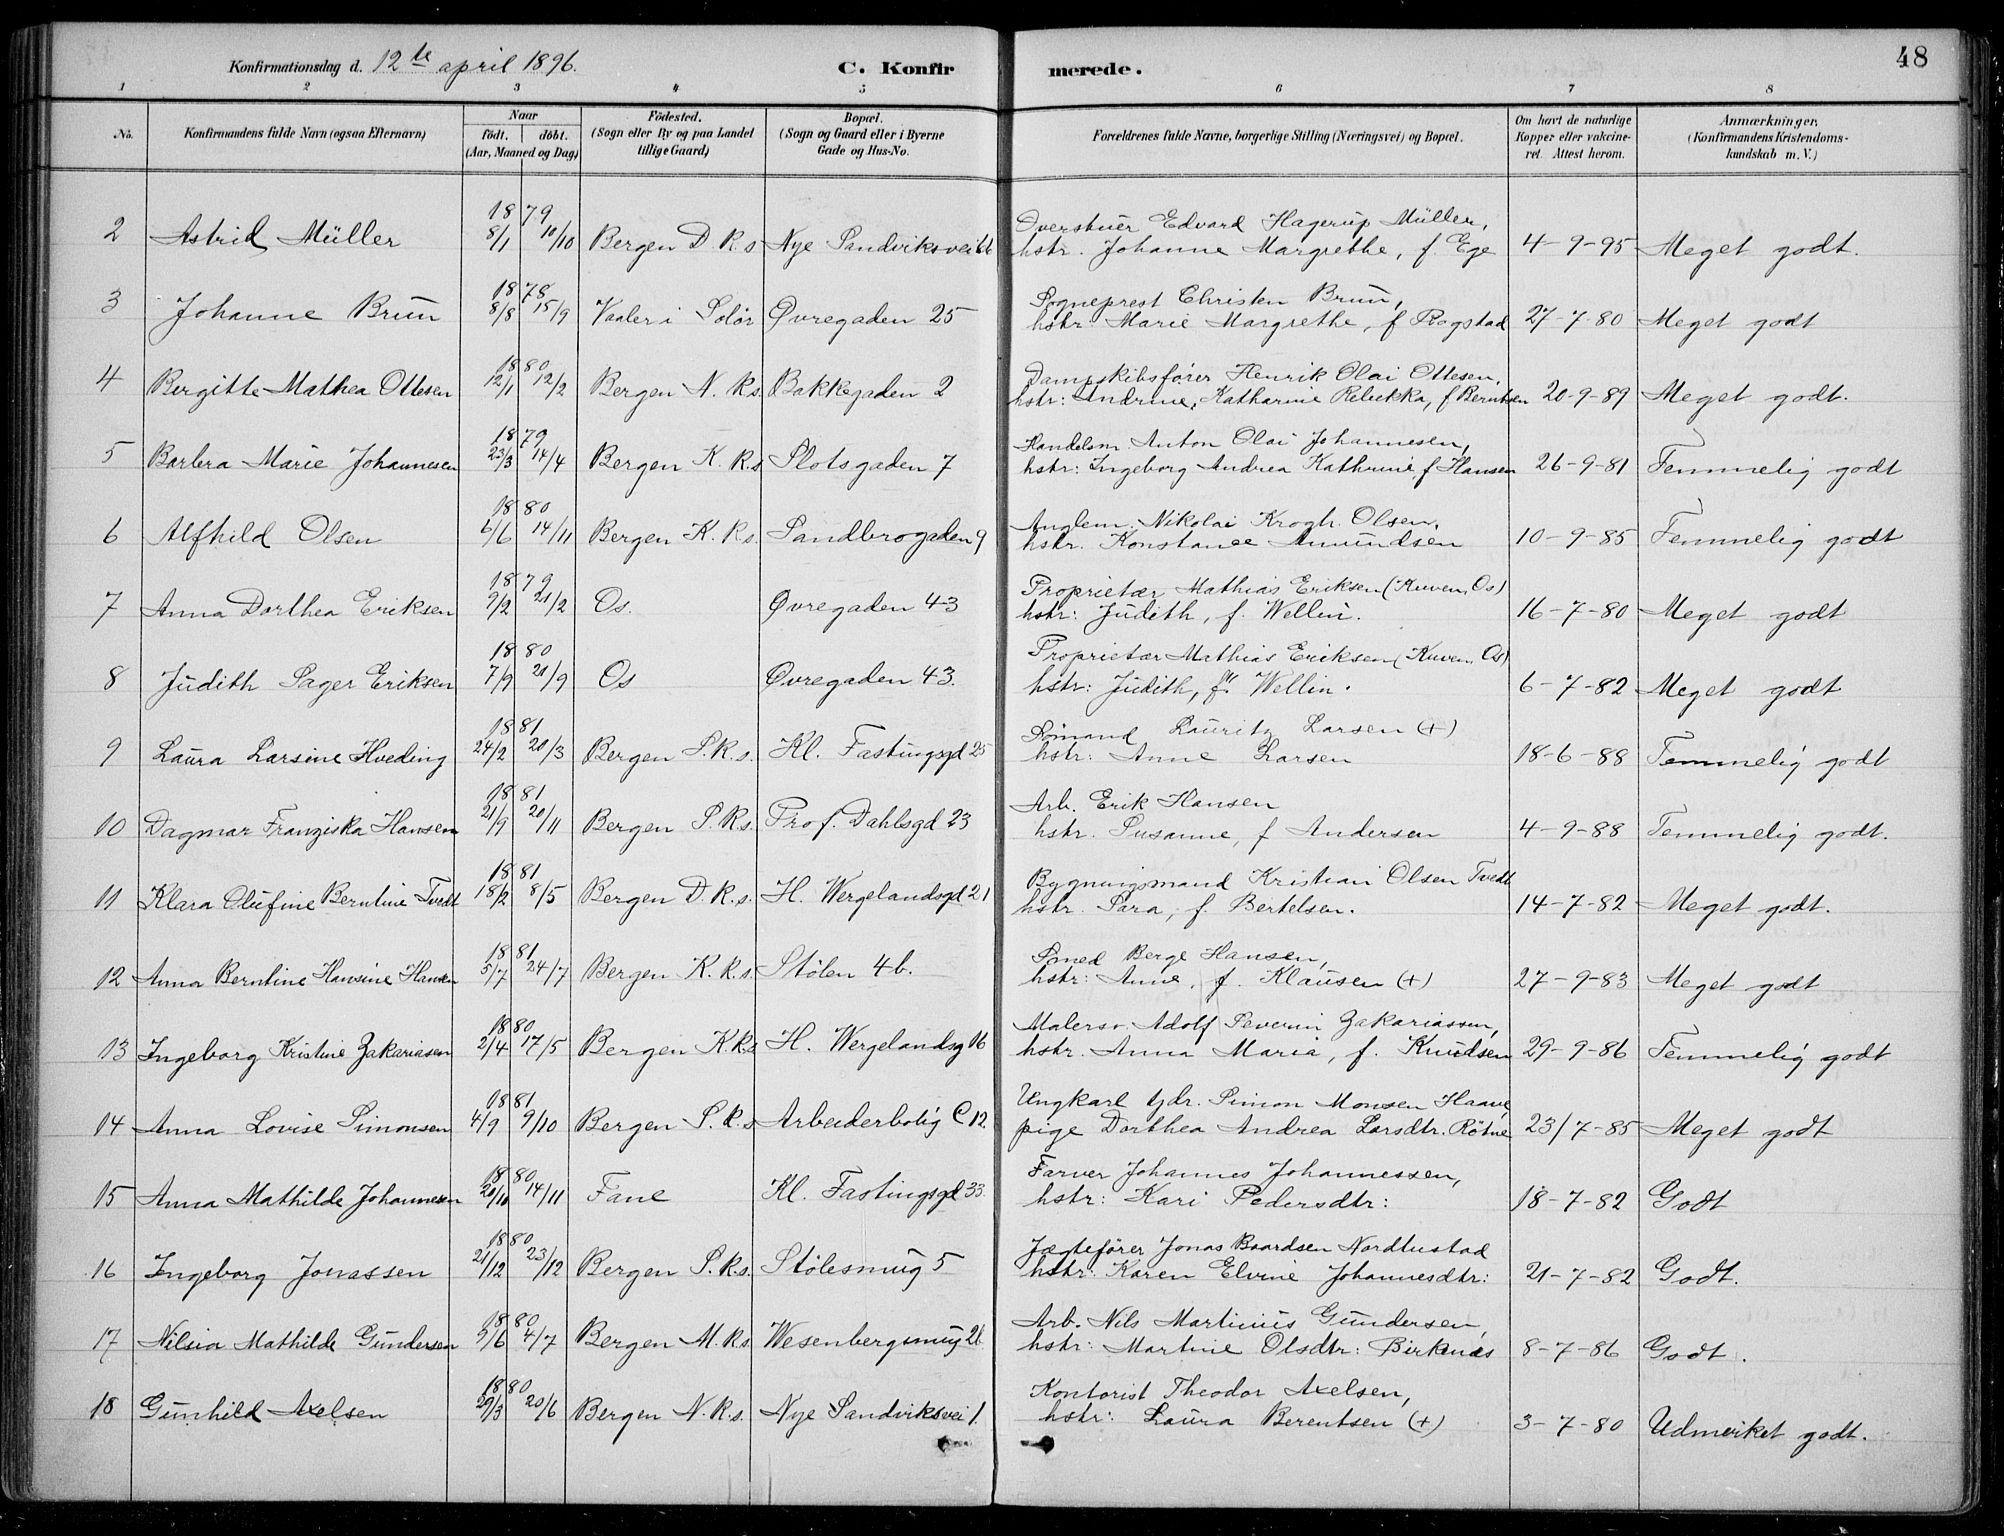 Konfirmationsdag d. 12te april 1896.
C. Konfirmerede.
48
1 2 3 4 5 6 7 8
No. Konfirmandens fulde Navn (ogsaa Efternavn) Naar födt. döbt. (Aar, Maaned og Dag) Födested. (Sogn eller By og paa Landet tillige Gaard) Bopæl. (Sogn og Gaard eller i Byerne Gade og Hus-No. Forældrenes fulde Navne, borgerlige Stilling (Næringsvei) og Bopæl. Om havt de naturlige Kopper eller vakcineret. Attest herom. Anmærkninger. (Konfirmandens Kristendomskundskab m. V.)
2 Astrid Müller 1879 8/1 10/10 Bergen D.K.s Nye Sandviksvei 66 Overstuer Edvard Hagerup Müller, hstr. Johanne Margrethe, f. Ege 4-9-95 Meget godt.
3 Johanne Brun 1878 8/8 15/9 Vaaler i Solør Øvregaden 25 Sogneprest Christen Brun, hstr Marie Margrethe, f Rogstad 27-7-80 Meget godt
4 Bergitte Mathea Ottesen 1880 12/1 12/2 Bergen N.K.s. Bakkegaden 2 Dampskibsfører Henrik Olai Ottesen, hstr: Andrine, Katharine Rebekka, f Berntsen 20-9-89 Meget godt.
5 Barbra Marie Johannesen 1879 23/3 14/4 Bergen K.K.s Slotsgaden 7 Handelsm. Anton Olai Johannesen, hstr: Ingeborg Andrea Kathrine, f Hansen 26-9-81 Temmelig godt
6 Alfhild Olsen 1880 6/6 14/11 Bergen K.K.s. Sandbrogaden 9 Nikolai Krogh Olsen, hstr. Konstance Amundsen 10-9-85 Temmelig godt
7 Anna Dorthea Eriksen 1879 9/2 21/2 Os. Øvregaden 43 Proprietær Mathias Eriksen (Kuven, Os) hstr: Judith, f. Wellin. 16-7-80 Meget godt
8 Judith Sager Eriksen 1880 7/9 21/9 Os Øvregaden 43. Proprietær Mathias Eriksen (Kuven, Os) hstr: Judith, f. Wellin. 6-7-82 Meget godt
9 Laura Larsine Hveding 1881 24/2 20/3 Bergen S.K.s. Kl. Fastingsgd 25 Sømand Lauritz Larsen (+) hstr: Anne Larsen 18-6-88 Temmelig godt
10 Dagmar Franziska Hansen 1881 21/9 20/11 Bergen S.K.s. Prof. Dahlsgd 23 Arb. Erik Hansen hstr. Susanne, f Andersen 4-9-88 Temmelig godt.
11 Klara Olufine Berntine Tvedt 1881 18/2 8/5 Bergen D.K.s. H. Wergelandsgd 21 Bygningsmand Kristian Olsen Tvedt hstr. Sara, f. Bertelsen. 14-7-82 Meget godt.
12 Anna Berntine Hansine Hansen 1881 5/7 24/7 Bergen K.K.s. Stølen 4b. Smed Berge Hansen, hstr: Anne, f. Klausen (+) 27-9-83 Meget godt
13 Ingeborg Kristine Zakariasen 1880 2/4 17/5 Bergen K.K.s H. Wergelandsg 16 Malersv. Adolf Severin Zakariassen, hstr. Anna Maria, f. Knudsen 29-9-86 Temmelig godt
14 Anna Lovise Simonsen 1881 4/9 9/10 Bergen S.K.s Arbeiderbolig C 12. Ungkarl Gdr. Simon Monsen Haave, pige Dorthea Andrea Larsdtr. Røtne 23/7-85 Meget godt
15 Anna Mathilde Johannesen 1880 20/10 14/11 Fane Kl. Fastingsgd 33. Farver Johannes Johannessen, hstr: Kari Pedersdtr: 18-7-82 Godt
16 Ingeborg Jonassen 1880 21/12 23/12 Bergen S.K.s. Stølesmug 5 Jægtefører Jonas Baardsen Nordtustad hstr: Karen Elvine Johannesdtr: 21-7-82 Godt.
17 Nilsia Mathilde Gundersen 1880 9/6 4/7 Bergen M.K.s. Wesenbergsmug 26 Arb. Nils Martinius Gundersen, hstr: Martine Olsdtr: Birknæs 8-7-86 Godt.
18 Gunhild Axelsen 1880 29/3 20/6 Bergen N.K.s. Nye Sandviksvei 1. Kontorist Theodor Axelsen, hstr: Laura Berentsen (+) 3-7-80 Udmerket godt.